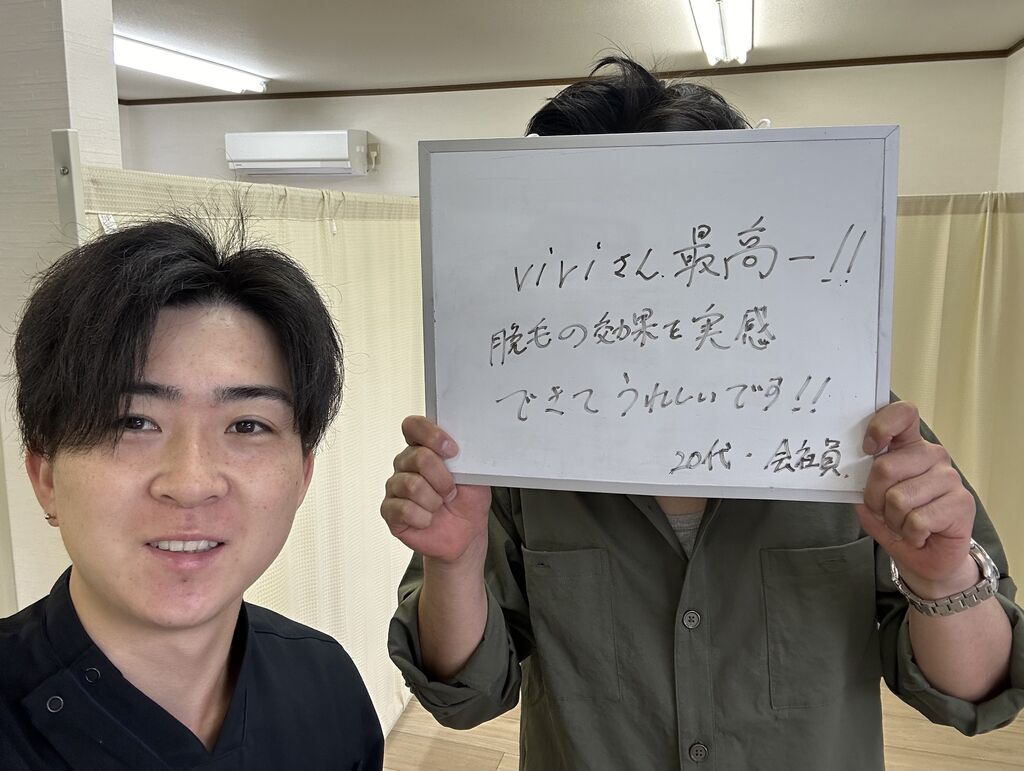 viviさん最高ー!!
脱毛の効果を実感
できてうれしいです!!
20代・会社員